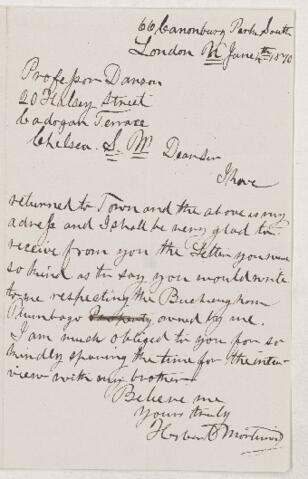 66 Canonbury Park South
London N June 4th 1870
Professor Dawson
20 Halsey Street
Cadogan Terrace
Chelsea. S. W. Dear Sir
I have
returned to Town and the above is my
adress and I shall be very glad to
receive from you the Letter you were
so kind as to say you would write
to me respecting the Buckingham
Plumbago Property owned by me.
I am much obliged to you for so
kindly sparing the time for the inter-
view with my brother
Believe me
Yours truly
Herbert